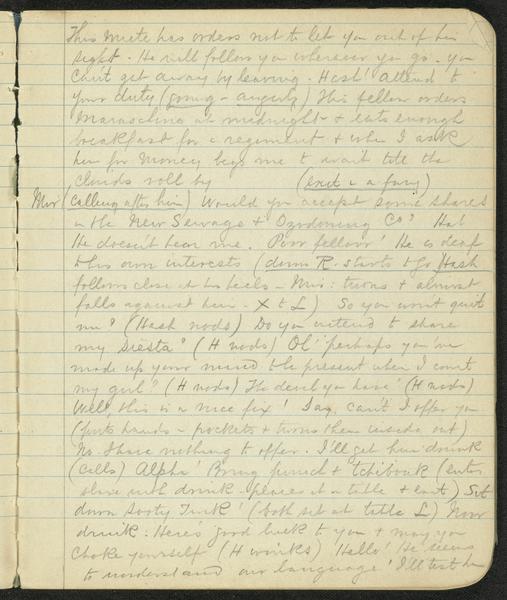 This Mute has orders not to let you out of his
sight. He will follow you wherever you go. You
can't get away by leaving. Hash! Attend to
your duty (going - angrily) This fellow orders
Maraschino at midnight & eats enough
breakfast for a regiment & when I ask
him for money begs me to wait till the
clouds roll by (exit in a fury)
Mur (Calling after him) Would you accept some shares
in the New Sewage & Co? Ha!
He doesn't hear me. Poor fellow! He is deaf
to his own interests (down R. starts to go Hash
follows close at his heels - Mur: turns & almost
falls against him - X to L) So you won't quit
me? (Hash nods) Do you intend to share
my siesta? (H nods) Oh! perhaps you've
made up your mind to be present when I court
my girl? (H nods) The devil you have! (H nods)
Well, this is a nice fix! Say, can't I offer you
(puts hands in pockets & turns them inside out)
No. I have nothing to offer. I'll get him drunk
(calls) Alpha! Bring punch & tchibouk (enter
slave with drink. places it on table & exit) Sit
down Sooty Turk! (both sit at table L) Now
drink: Here's good luck to you & may you
choke yourself (H winks) Hello! He seems
to understand our language! I'll test him